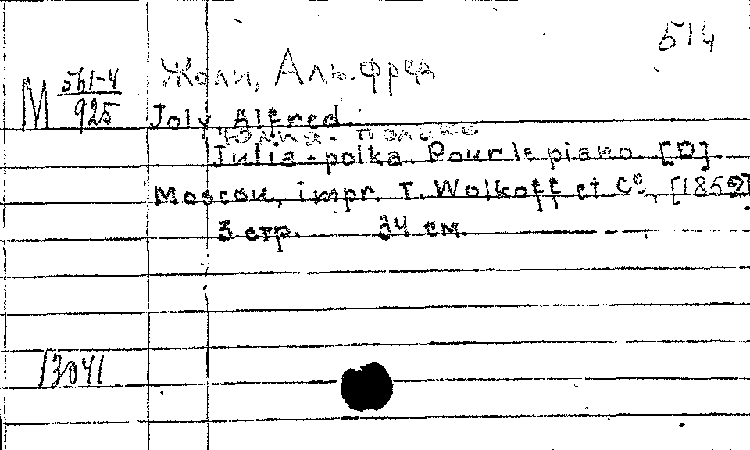 514
Жоли, Альфред
М 561-4/925
Joly Alfred.
Юлия-полька
Julia-polka. Pour le piano. [D].
Moscou, impr. T. Wolkoff et Cº, [1852].
3 стр. 34 см.
13041